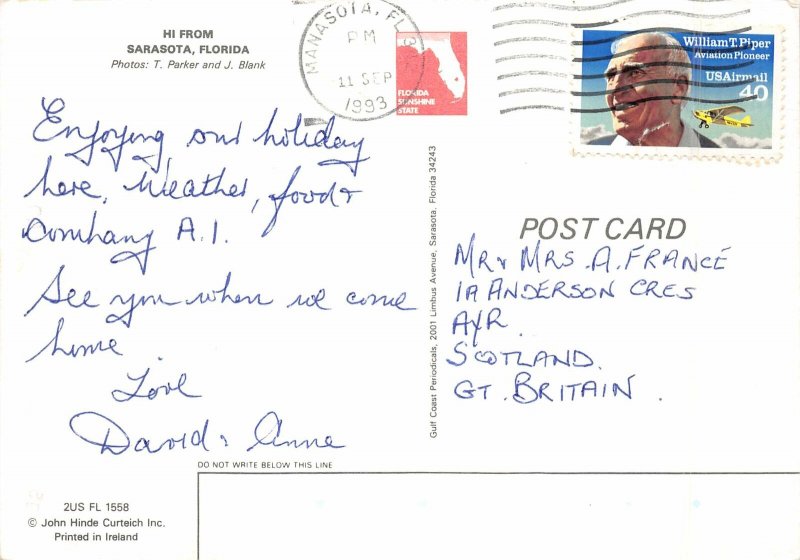 HI FROM
SARASOTA, FLORIDA
Photos: T. Parker and J. Blank
MANASOTA, FL
PM
11 SEP
1993
FLORIDA
SUNSHINE
STATE
William T. Piper
Aviation Pioneer
USAirmail
40
Enjoying our holiday
here, Weather, food &
Company A.1.
See you when we come
home
Love
David & Anne
Gulf Coast Periodicals, 2001 Limbus Avenue, Sarasota, Florida 34243
POST CARD
MR & MRS. A. FRANCE
1A ANDERSON CRES
AYR
SCOTLAND.
GT. BRITAIN.
DO NOT WRITE BELOW THIS LINE
2US FL 1558
© John Hinde Curteich Inc.
Printed in Ireland